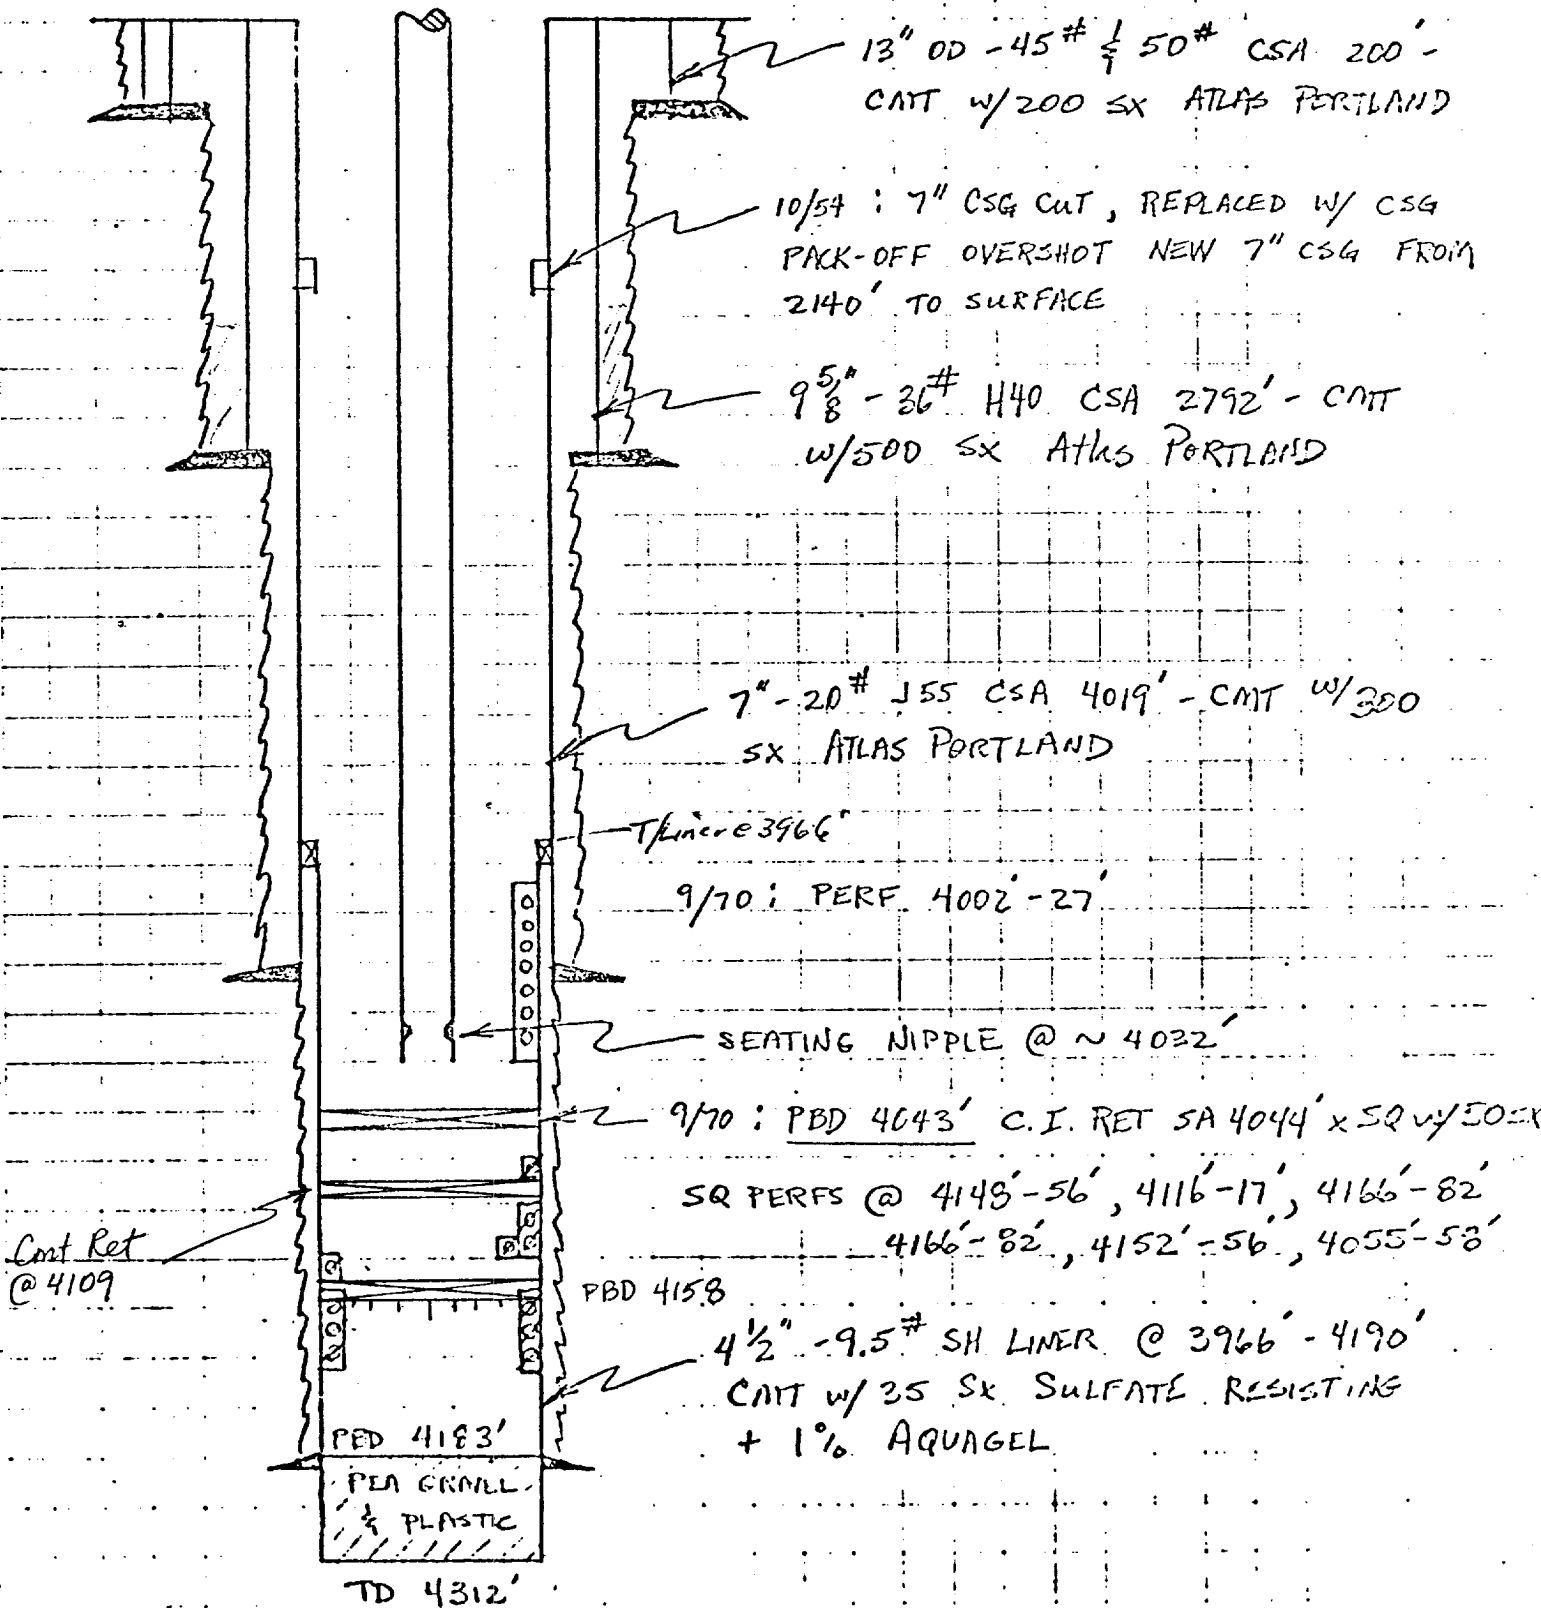 13" OD - 45# & 50# CSA 200' -
CMT w/200 SX ATLAS PORTLAND
10/54 : 7" CSG CUT, REPLACED W/ CSG
PACK-OFF OVERSHOT NEW 7" CSG FROM
2140' TO SURFACE
9 5/8" - 36# H40 CSA 2792' - CMT
w/500 SX Atlas PORTLAND
7" - 20# J55 CSA 4019' - CMT w/300
SX ATLAS PORTLAND
T/Liner @ 3966'
9/70 : PERF 4002'-27'
SEATING NIPPLE @ ~ 4032'
9/70 : PBD 4043' C.I. RET SA 4044' x SQ w/50SX
SQ PERFS @ 4148'-56', 4116'-17', 4166'-82'
4166'-82', 4152'-56', 4055'-58'
Cmt Ret
@ 4109
PBD 4158
4 1/2" - 9.5# SH LINER @ 3966' - 4190'
CMT w/ 35 SX SULFATE RESISTING
+ 1% AQUAGEL
PBD 4183'
PEA GRAVEL
& PLASTIC
TD 4312'